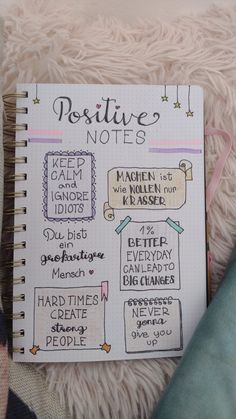 Positive
NOTES
KEEP
CALM
and
IGNORE
IDIOTS
MACHEN ist
wie WOLLEN nur
KRASSER
Du bist
ein
großartiger
Mensch
1%
BETTER
EVERYDAY
CAN LEAD TO
BIG CHANGES
HARD TIMES
CREATE
strong
PEOPLE
NEVER
gonna
give you
up